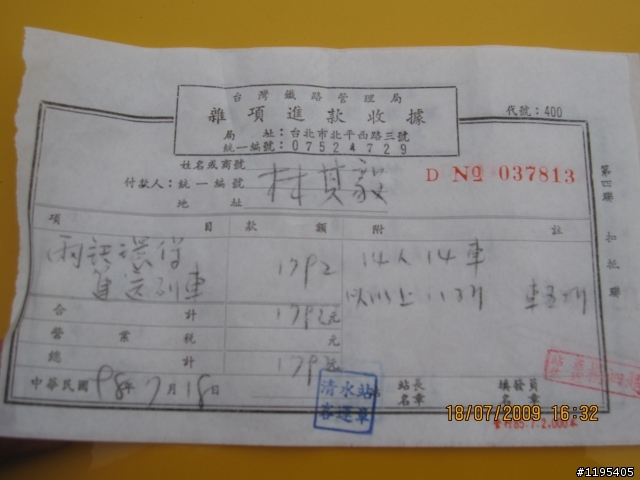 台灣鐵路管理局
雜項進款收據
局 址：台北市北平西路三號
統一編號：07524729
代號：400
姓名或商號
付款人：統一編號
地 址
林其毅
D № 037813
第四聯 扣抵聯
項 目 款 額 附 註
兩鐵環保
1792
14人 14車
列車
合 計 1792元
營業稅 元
總 計 1792元
中華民國98年7月18日
清水站
站長
名章
填發員
名章
18/07/2009 16:32
#1195405